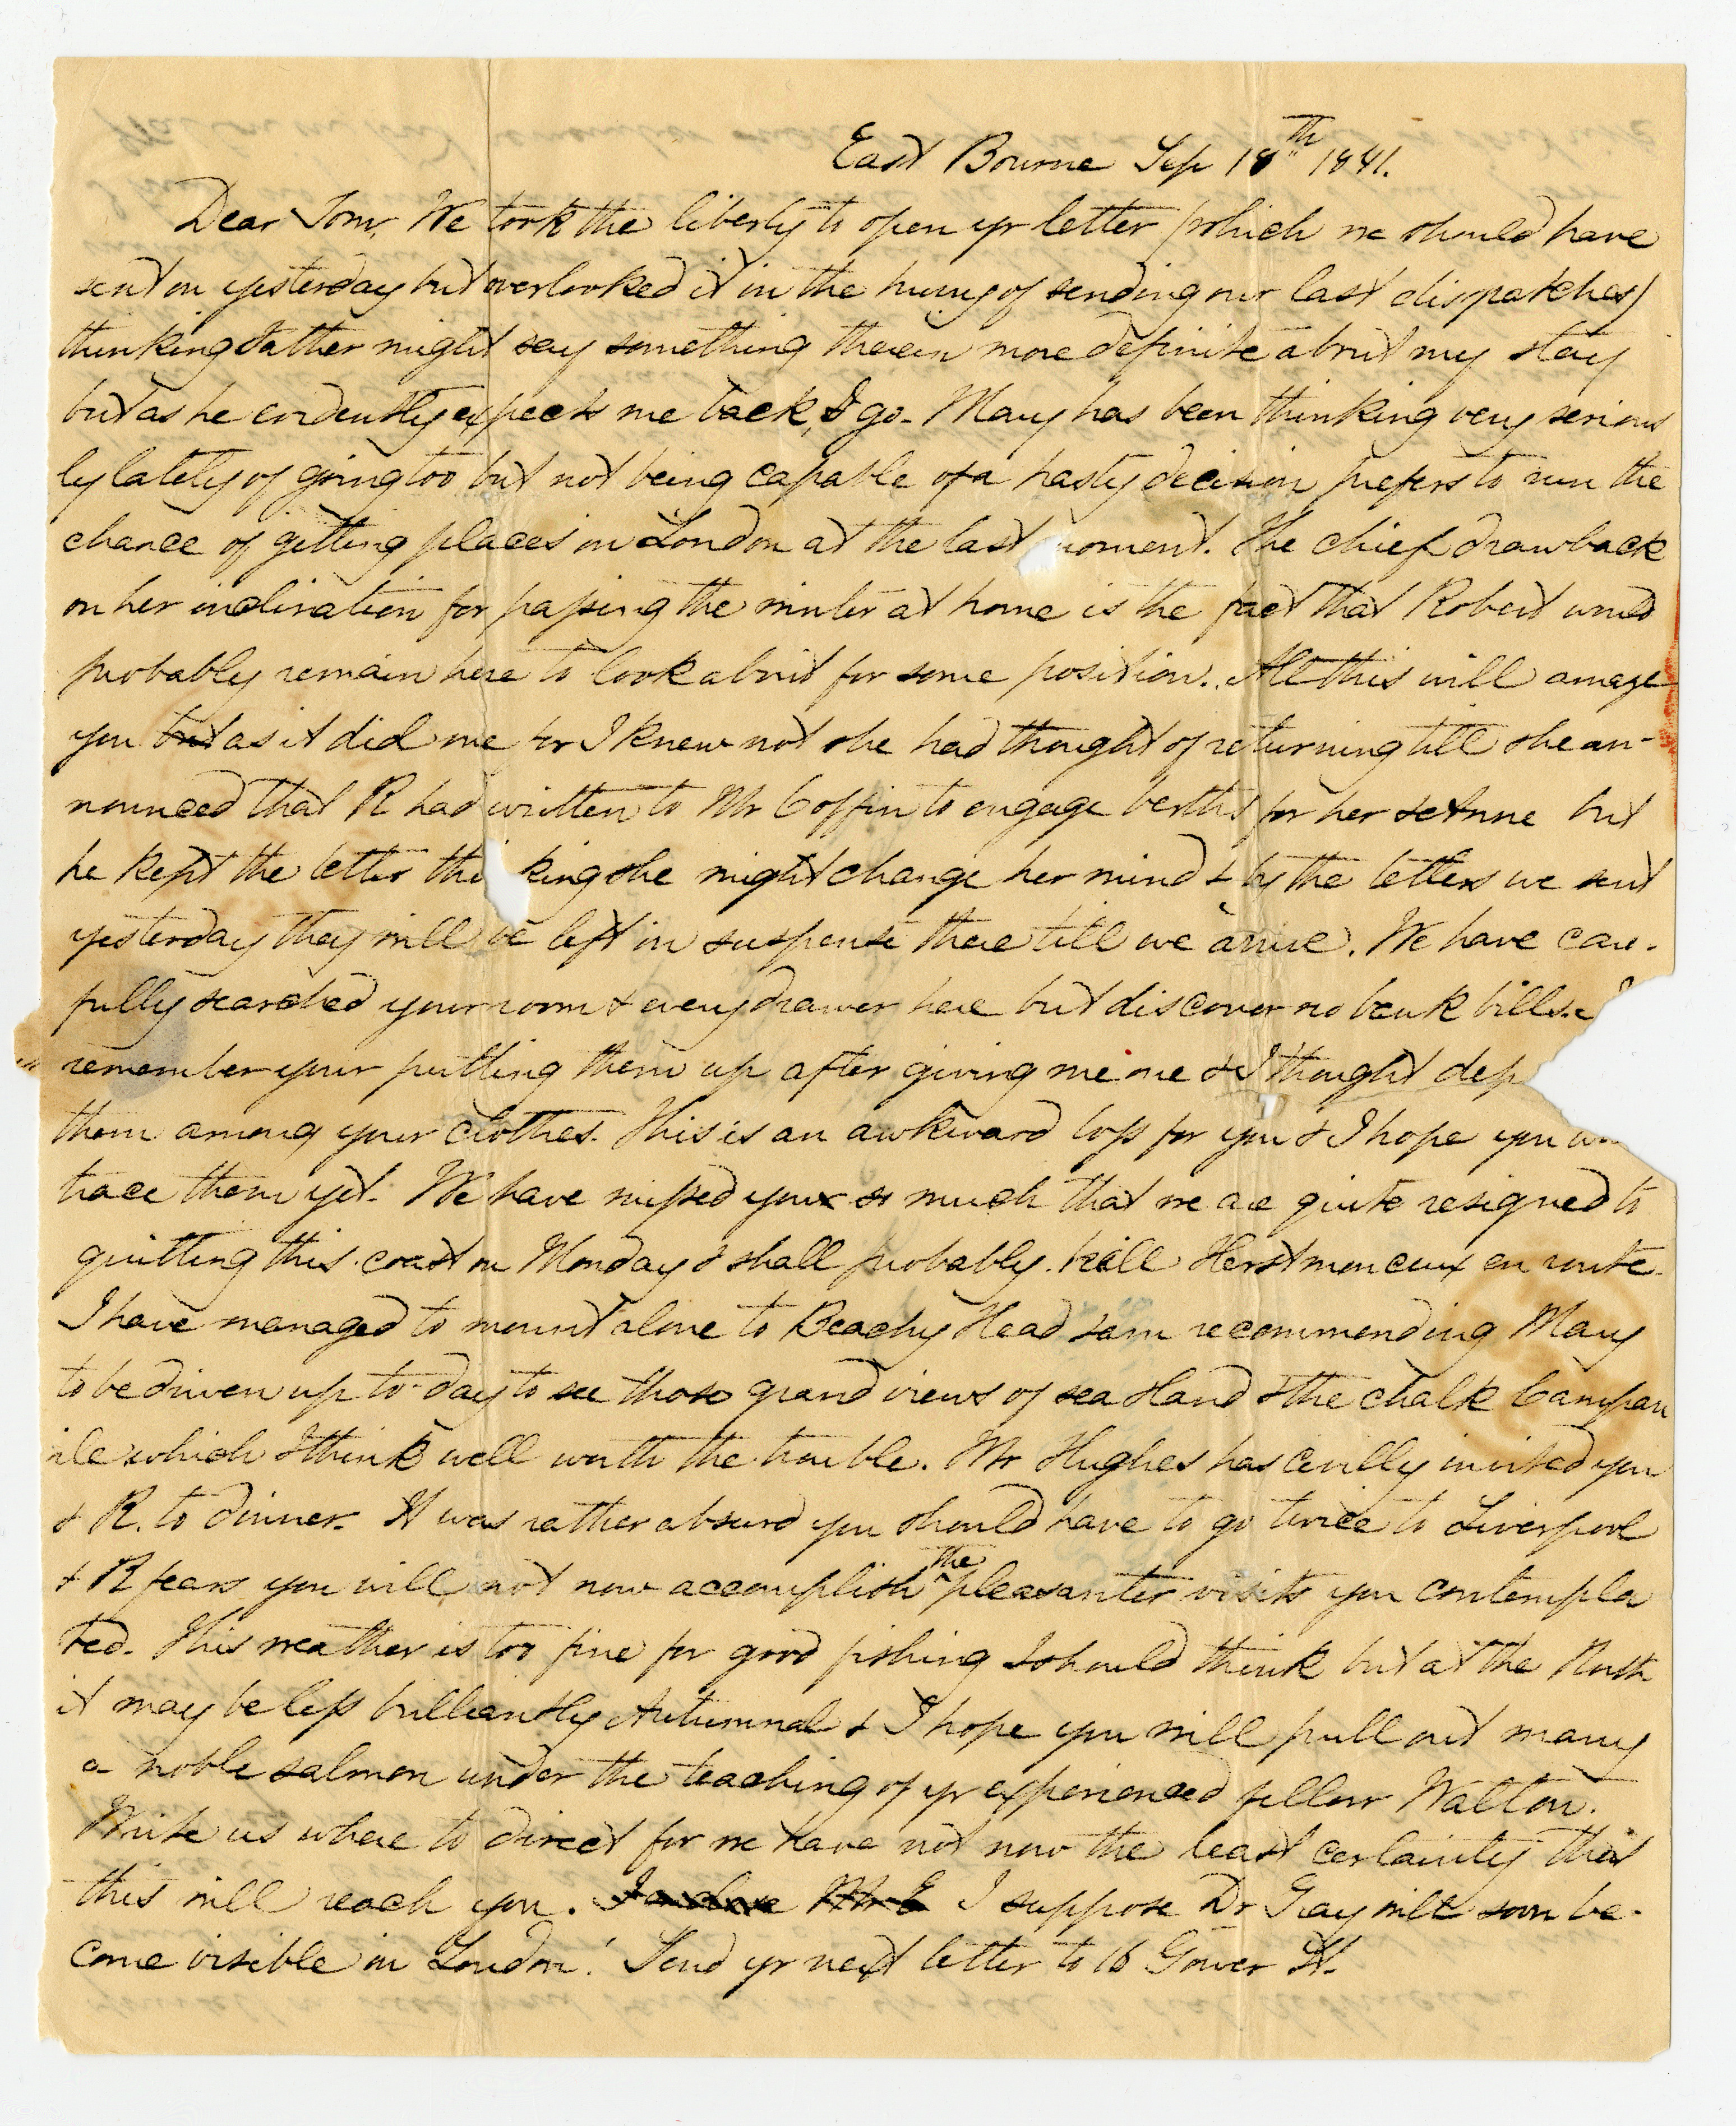 East Bourne Sep 18th 1841.
Dear Tom, We took the liberty to open yr letter (which we should have
sent on yesterday but overlooked it in the hurry of sending our last dispatches)
thinking Father might say something therein more definite about my stay
but as he evidently expects me back, I go. Mary has been thinking very serious
ly lately of going too but not being capable of a hasty decision prefers to run the
chance of getting places in London at the last moment. The chief drawback
on her inclination for passing the winter at home is the fact that Robert would
probably remain here to look about for some position. All this will amaze
you but as it did me for I knew not she had thought of returning till she an-
nounced that R had written to Mr Coffin to engage berths for her & Anne but
he kept the letter thi king she might change her mind & by the letters we sent
yesterday they will be left in suspense there till we arrive. We have care-
fully searched your room & every drawer here but discover no bank bills.
remember your putting them up after giving me one & I thought dep
them among your clothes. This is an awkward loss for you & I hope you
trace them yet. We have missed you so much that we are quite resigned to
quitting this coast on Monday & shall probably kill Herstmonceux en route.
I have managed to mount alone to Beachy Head & am recommending Mary
to be driven up to-day to see those grand views of sea & land & the chalk Campan
ile which I think well worth the trouble. Mr Hughes has civilly invited you
& R. to dinner. It was rather absurd you should have to go twice to Liverpool
& R fears you will not now accomplish the pleasanter visits you contempla
ted. This weather is too fine for good fishing I should think but at the North
it may be less brilliantly Autumnal & I hope you will pull out many
a noble salmon under the teaching of yr experienced fellow Walton.
Write us where to direct for we have not now the least certainty that
this will reach you. I suppose Dr Gray will soon be-
come visible in London. Send yr next letter to 16 Gower St.